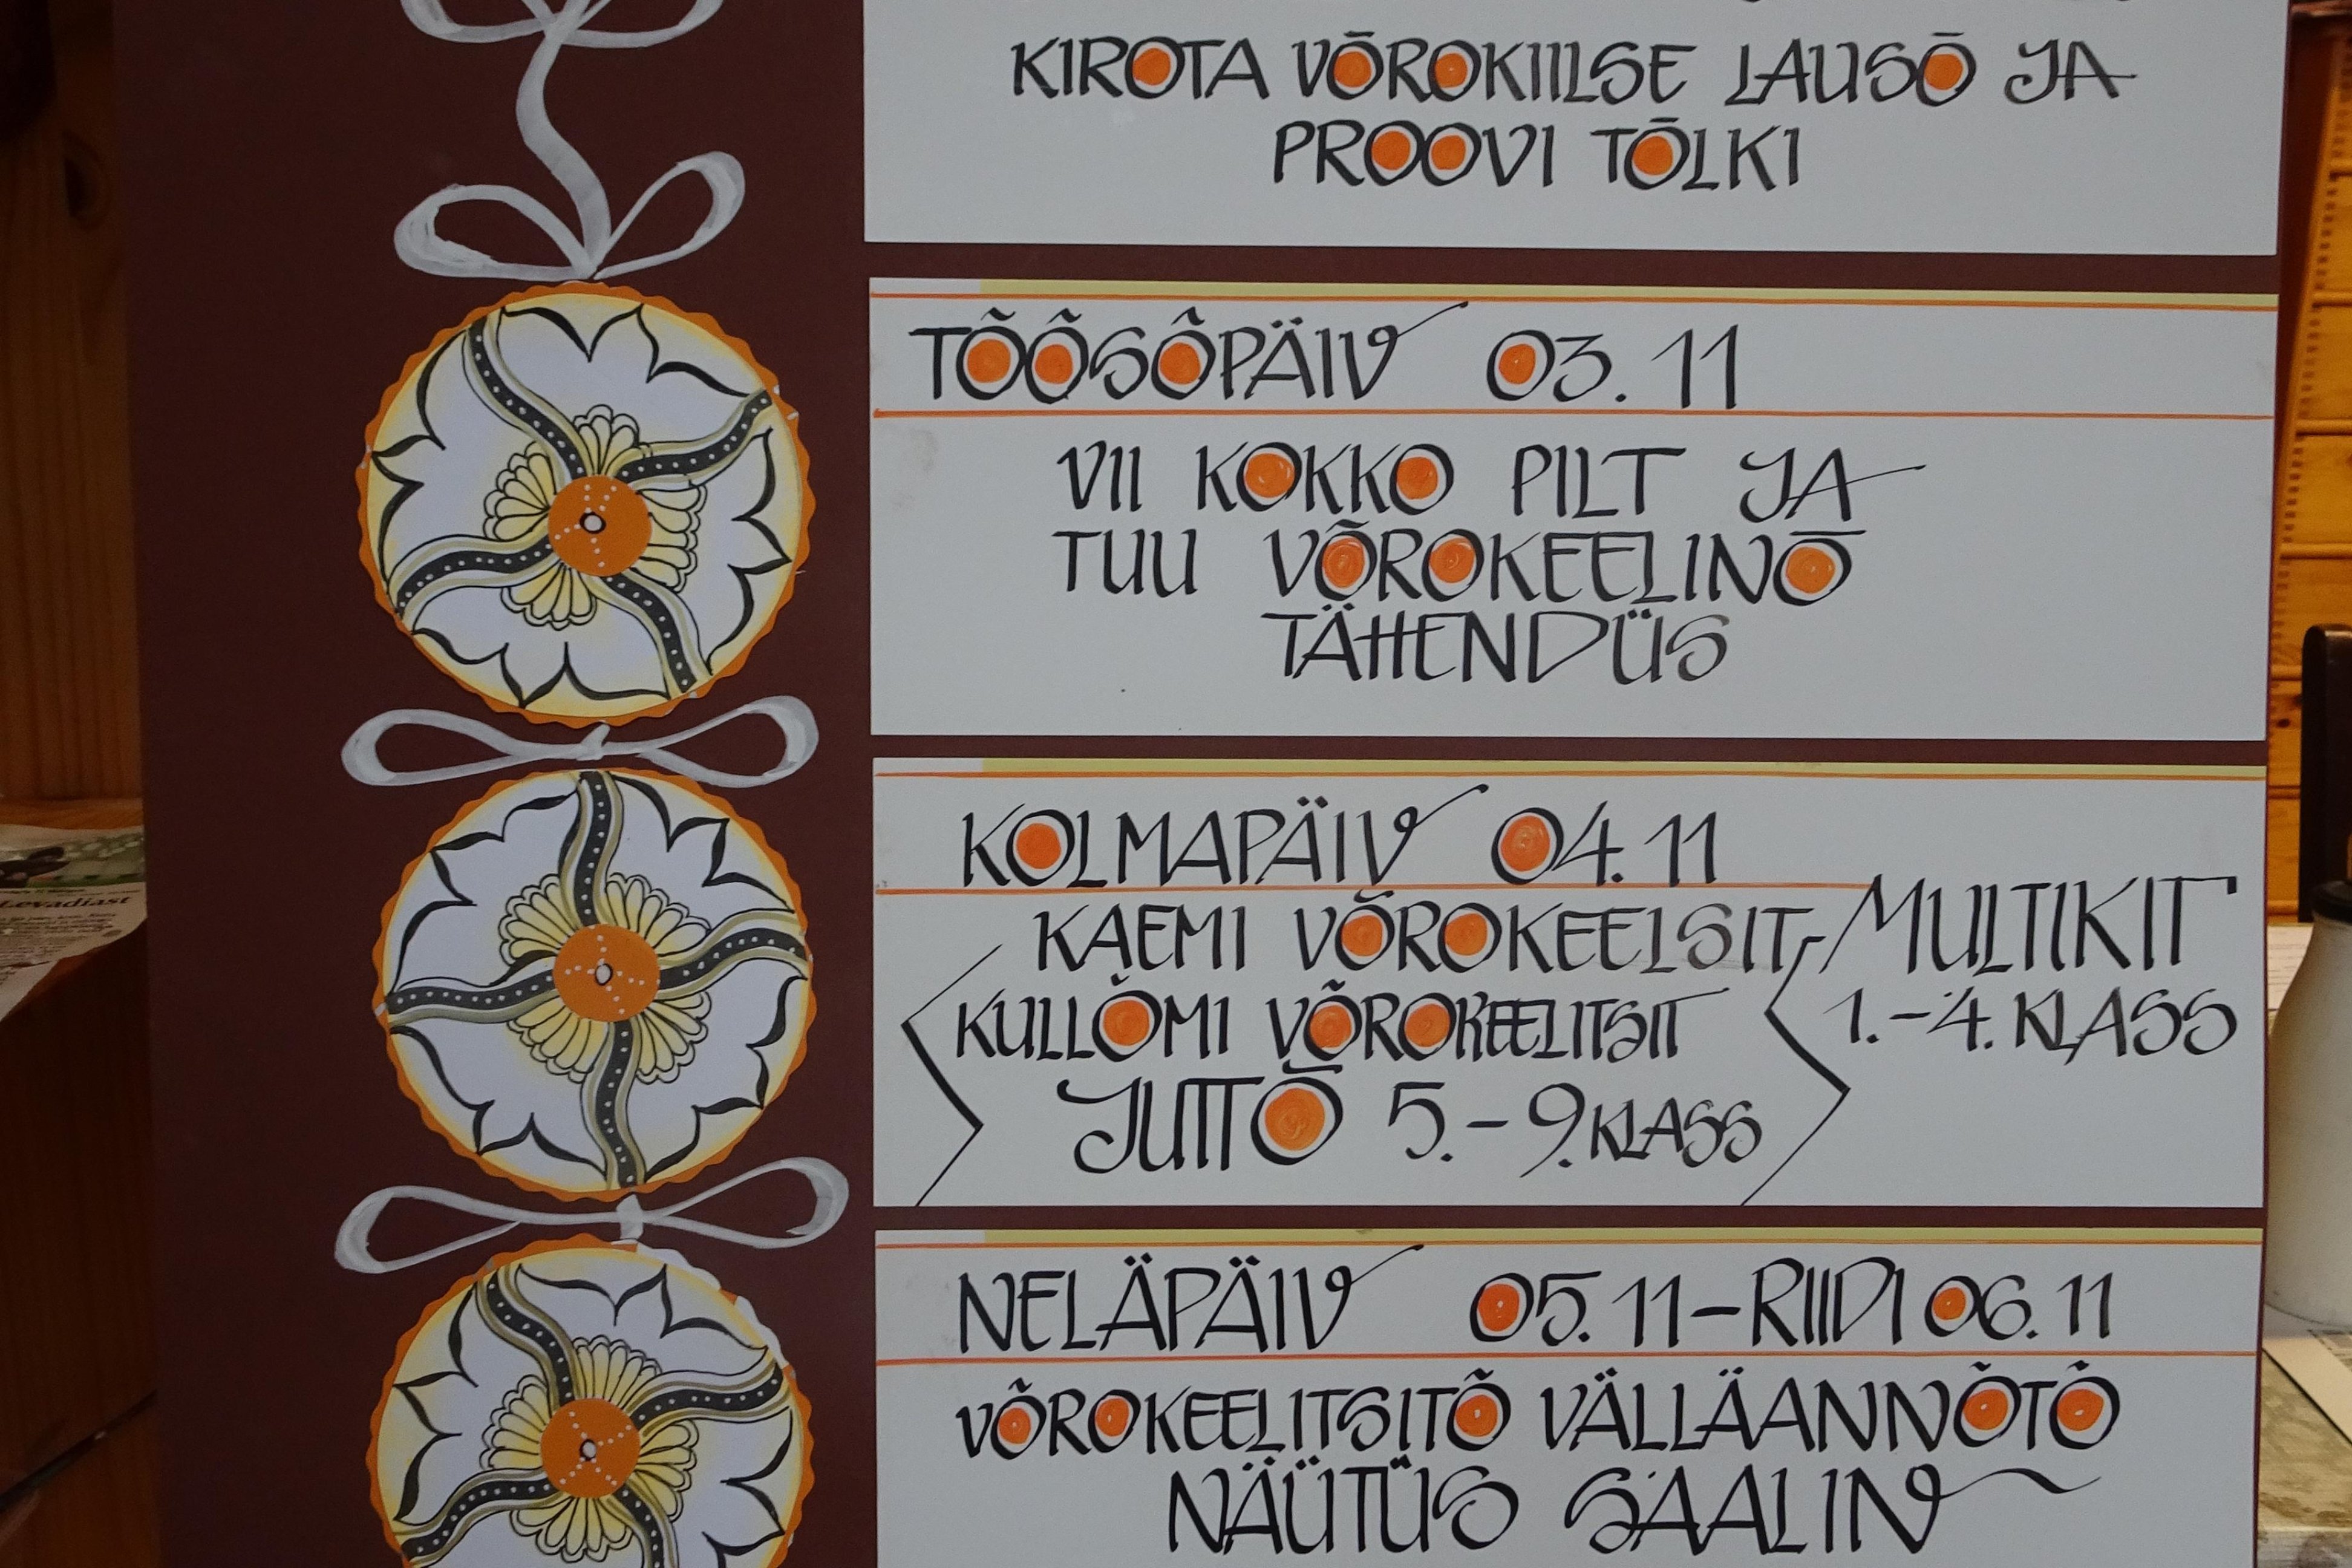 KIROTA VÕROKIILSE LAUSÕ JA
PROOVI TÕLKI
TÕÕSÕPÄIV 03.11
VII KOKKO PILT JA
TUU VÕROKEELINÕ
TÄHENDÜS
KOLMAPÄIV 04.11
KAEMI VÕROKEELSIT MULTIKIT
1.-4. KLASS
KULLÕMI VÕROKEELITSIT
JUTTÕ 5.-9. KLASS
NELÄPÄIV 05.11 – RIIDI 06.11
VÕROKEELITSITÕ VÄLLÄANNÕTÕ
NÄÜTÜS SAALIN
Levadiast